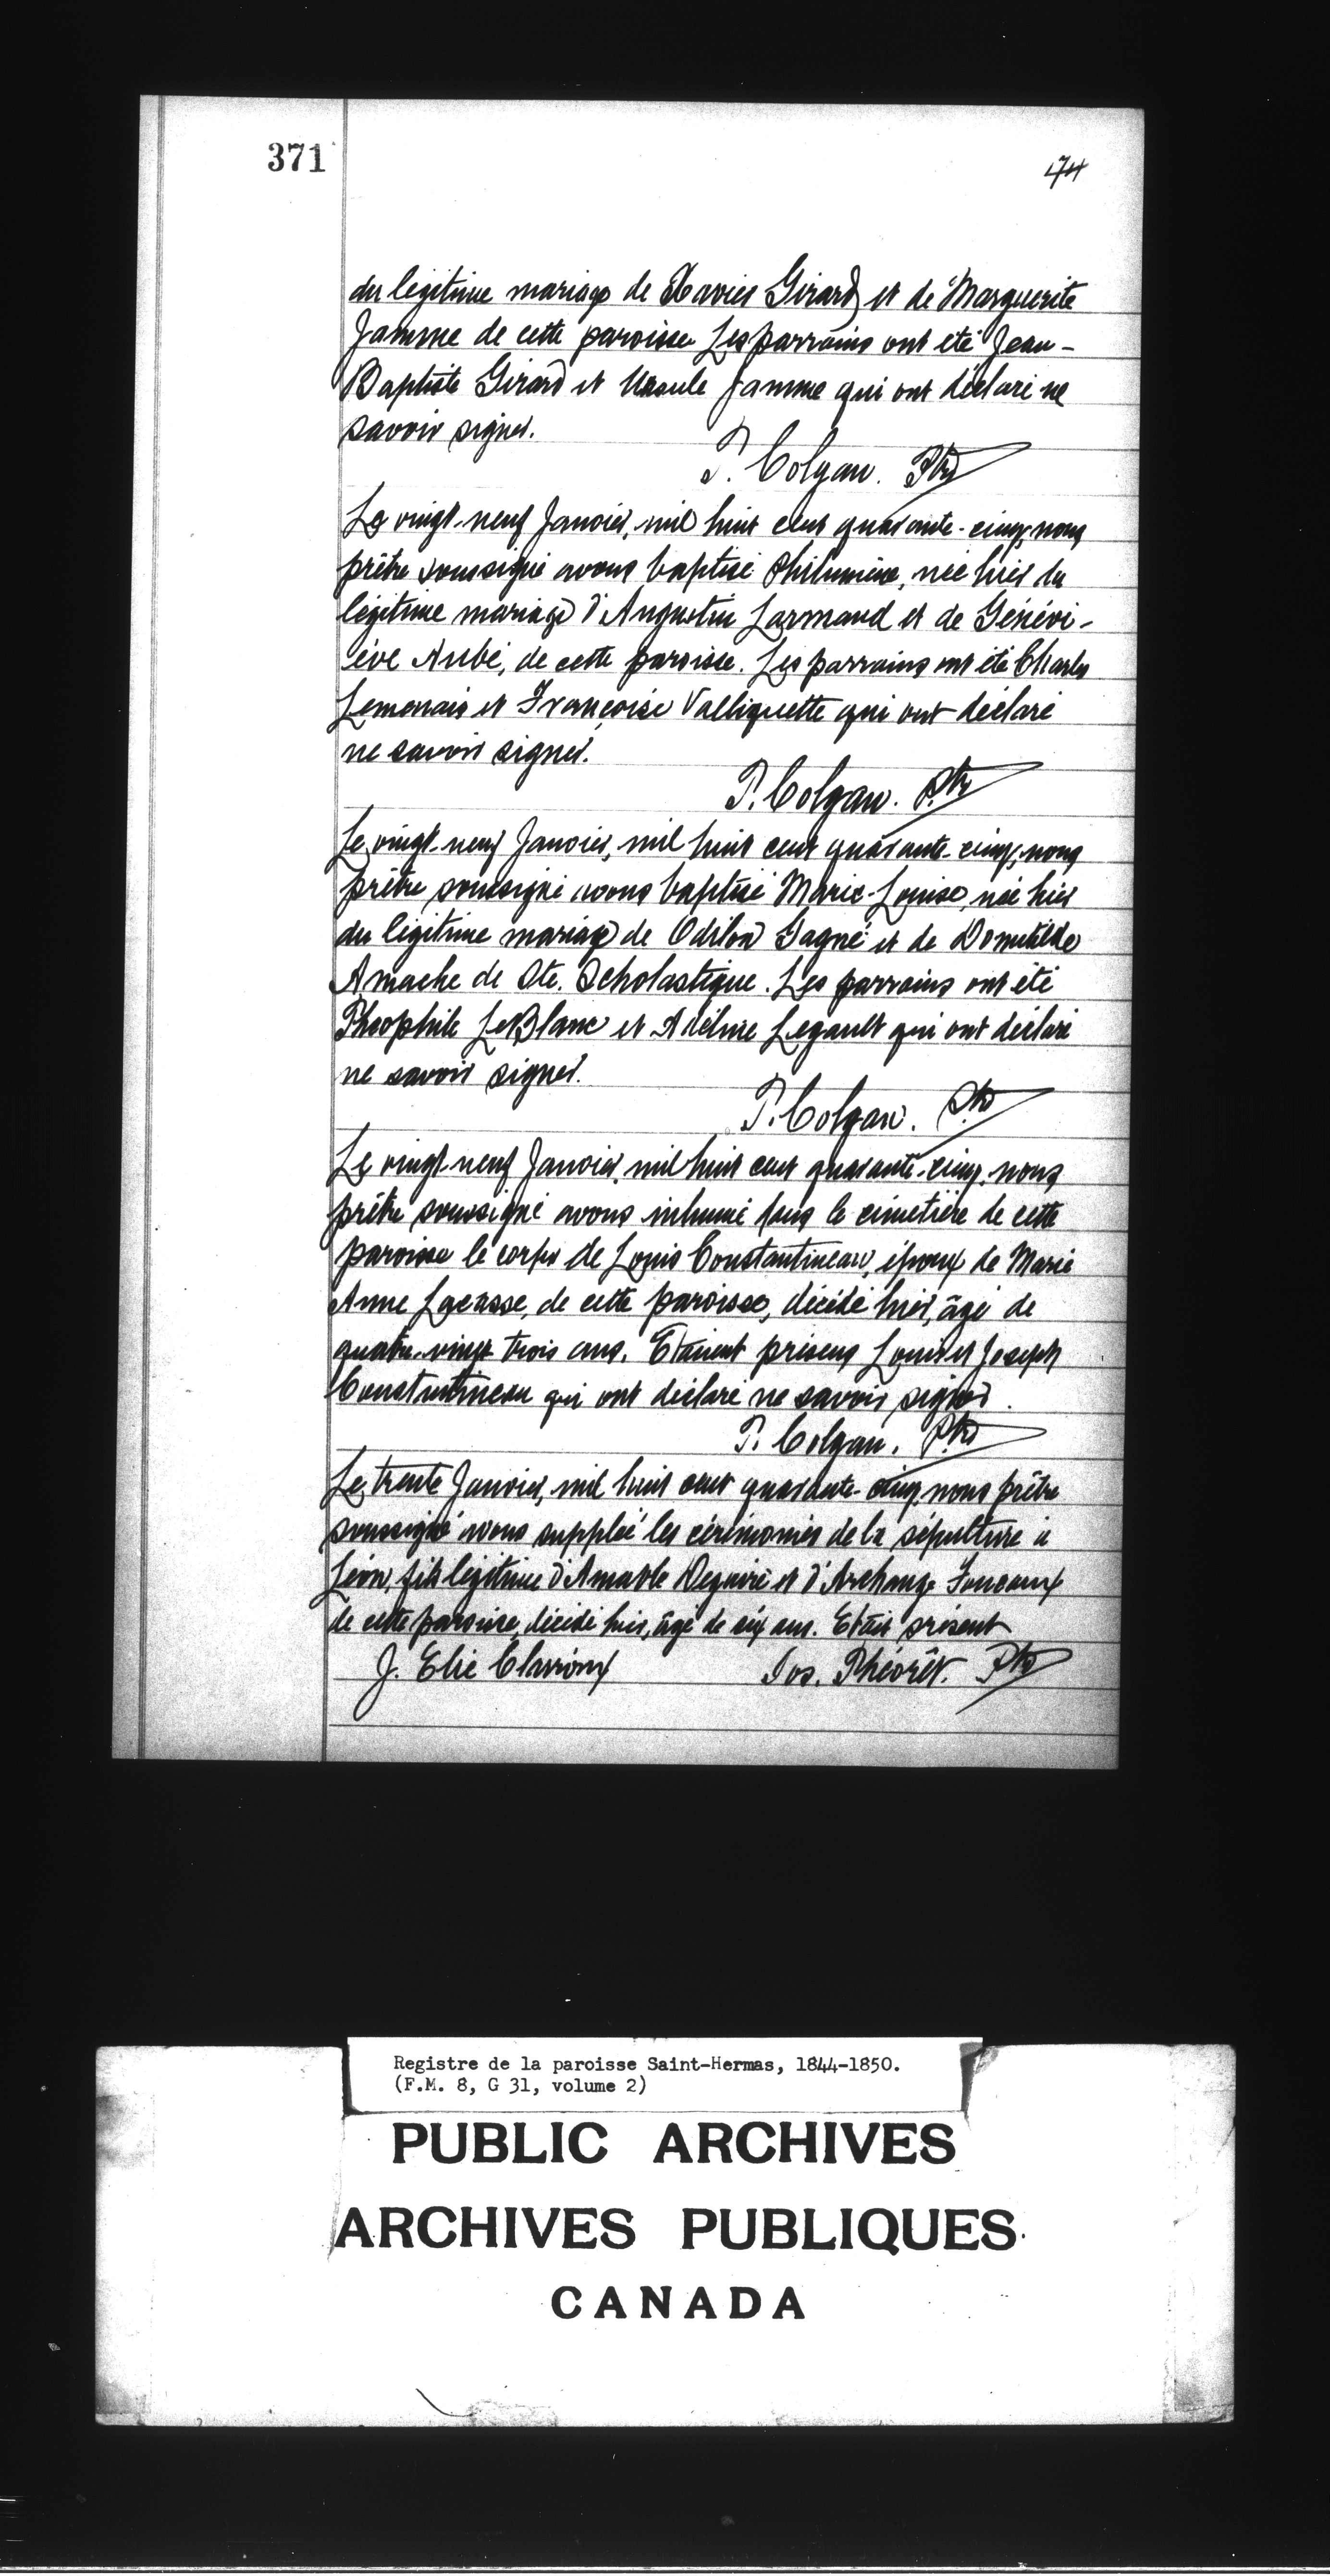 371
74
du légitime mariage de Xavier Girard et de Marguerite
Jamme de cette paroisse. Les parrains ont été Jean-
Baptiste Girard et Ursule Jamme qui ont déclaré ne
savoir signer.
P. Colgan. Ptre
Le vingt-neuf Janvier, mil huit cent quarante-cinq, nous
prêtre soussigné avons baptisé Philumène, née hier du
légitime mariage d'Augustin Larmand et de Génévi-
ève Aubé, de cette paroisse. Les parrains ont été Charles
Lemenais et Françoise Valliquette qui ont déclaré
ne savoir signer.
P. Colgan. Ptre
Le vingt-neuf Janvier, mil huit cent quarante-cinq, nous
prêtre soussigné avons baptisé Marie-Louise, née hier
du légitime mariage de Odilon Gagné et de Domitilde
Amache de Ste. Scholastique. Les parrains ont été
Théophile LeBlanc et Adéline Legault qui ont déclaré
ne savoir signer.
P. Colgan. Ptre
Le vingt-neuf Janvier, mil huit cent quarante-cinq, nous
prêtre soussigné avons inhumé dans le cimetière de cette
paroisse le corps de Louis Constantineau, époux de Marie
Anne Lacasse, de cette paroisse, décédé hier, âgé de
quatre-vingt trois ans. Etaient présens Louis et Joseph
Constantineau qui ont déclaré ne savoir signer.
P. Colgan. Ptre
Le trente Janvier, mil huit cent quarante-cinq, nous prêtre
soussigné avons suppléé les cérémonies de la sépulture à
Léon, fils légitime d'Amable Deguire et d'Archange Foucaux
de cette paroisse, décédé hier, âgé de six ans. Etait présent
J. Elie Clairoux Jos. Théorêt. Ptre
Registre de la paroisse Saint-Hermas, 1844-1850.
(F.M. 8, G 31, volume 2)
PUBLIC ARCHIVES
ARCHIVES PUBLIQUES
CANADA